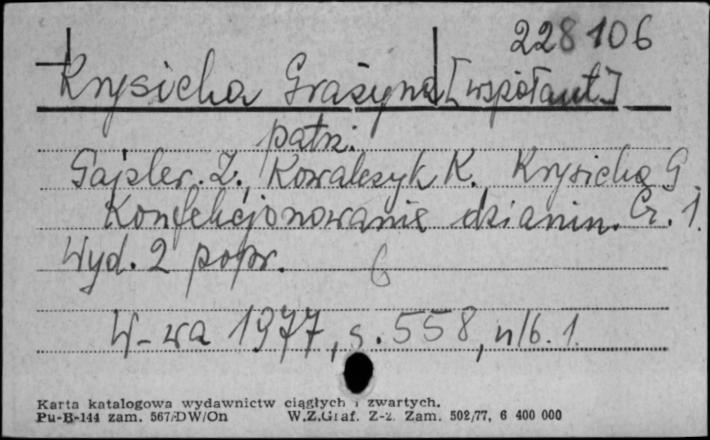 228106
Krysicha Grażyna [współaut.]
patrz.
Gajzler. Z., Kowalczyk K. Krysicha G
Konfekcjonowanie dzianin. Cz. 1.
Wyd. 2 popr. 6
W-wa 1977, s. 558, nlb. 1.
Karta katalogowa wydawnictw ciągłych i zwartych.
Pu-B-144 zam. 567/DW/On W.Z.Graf. Z-2. Zam. 502/77, 6 400 000